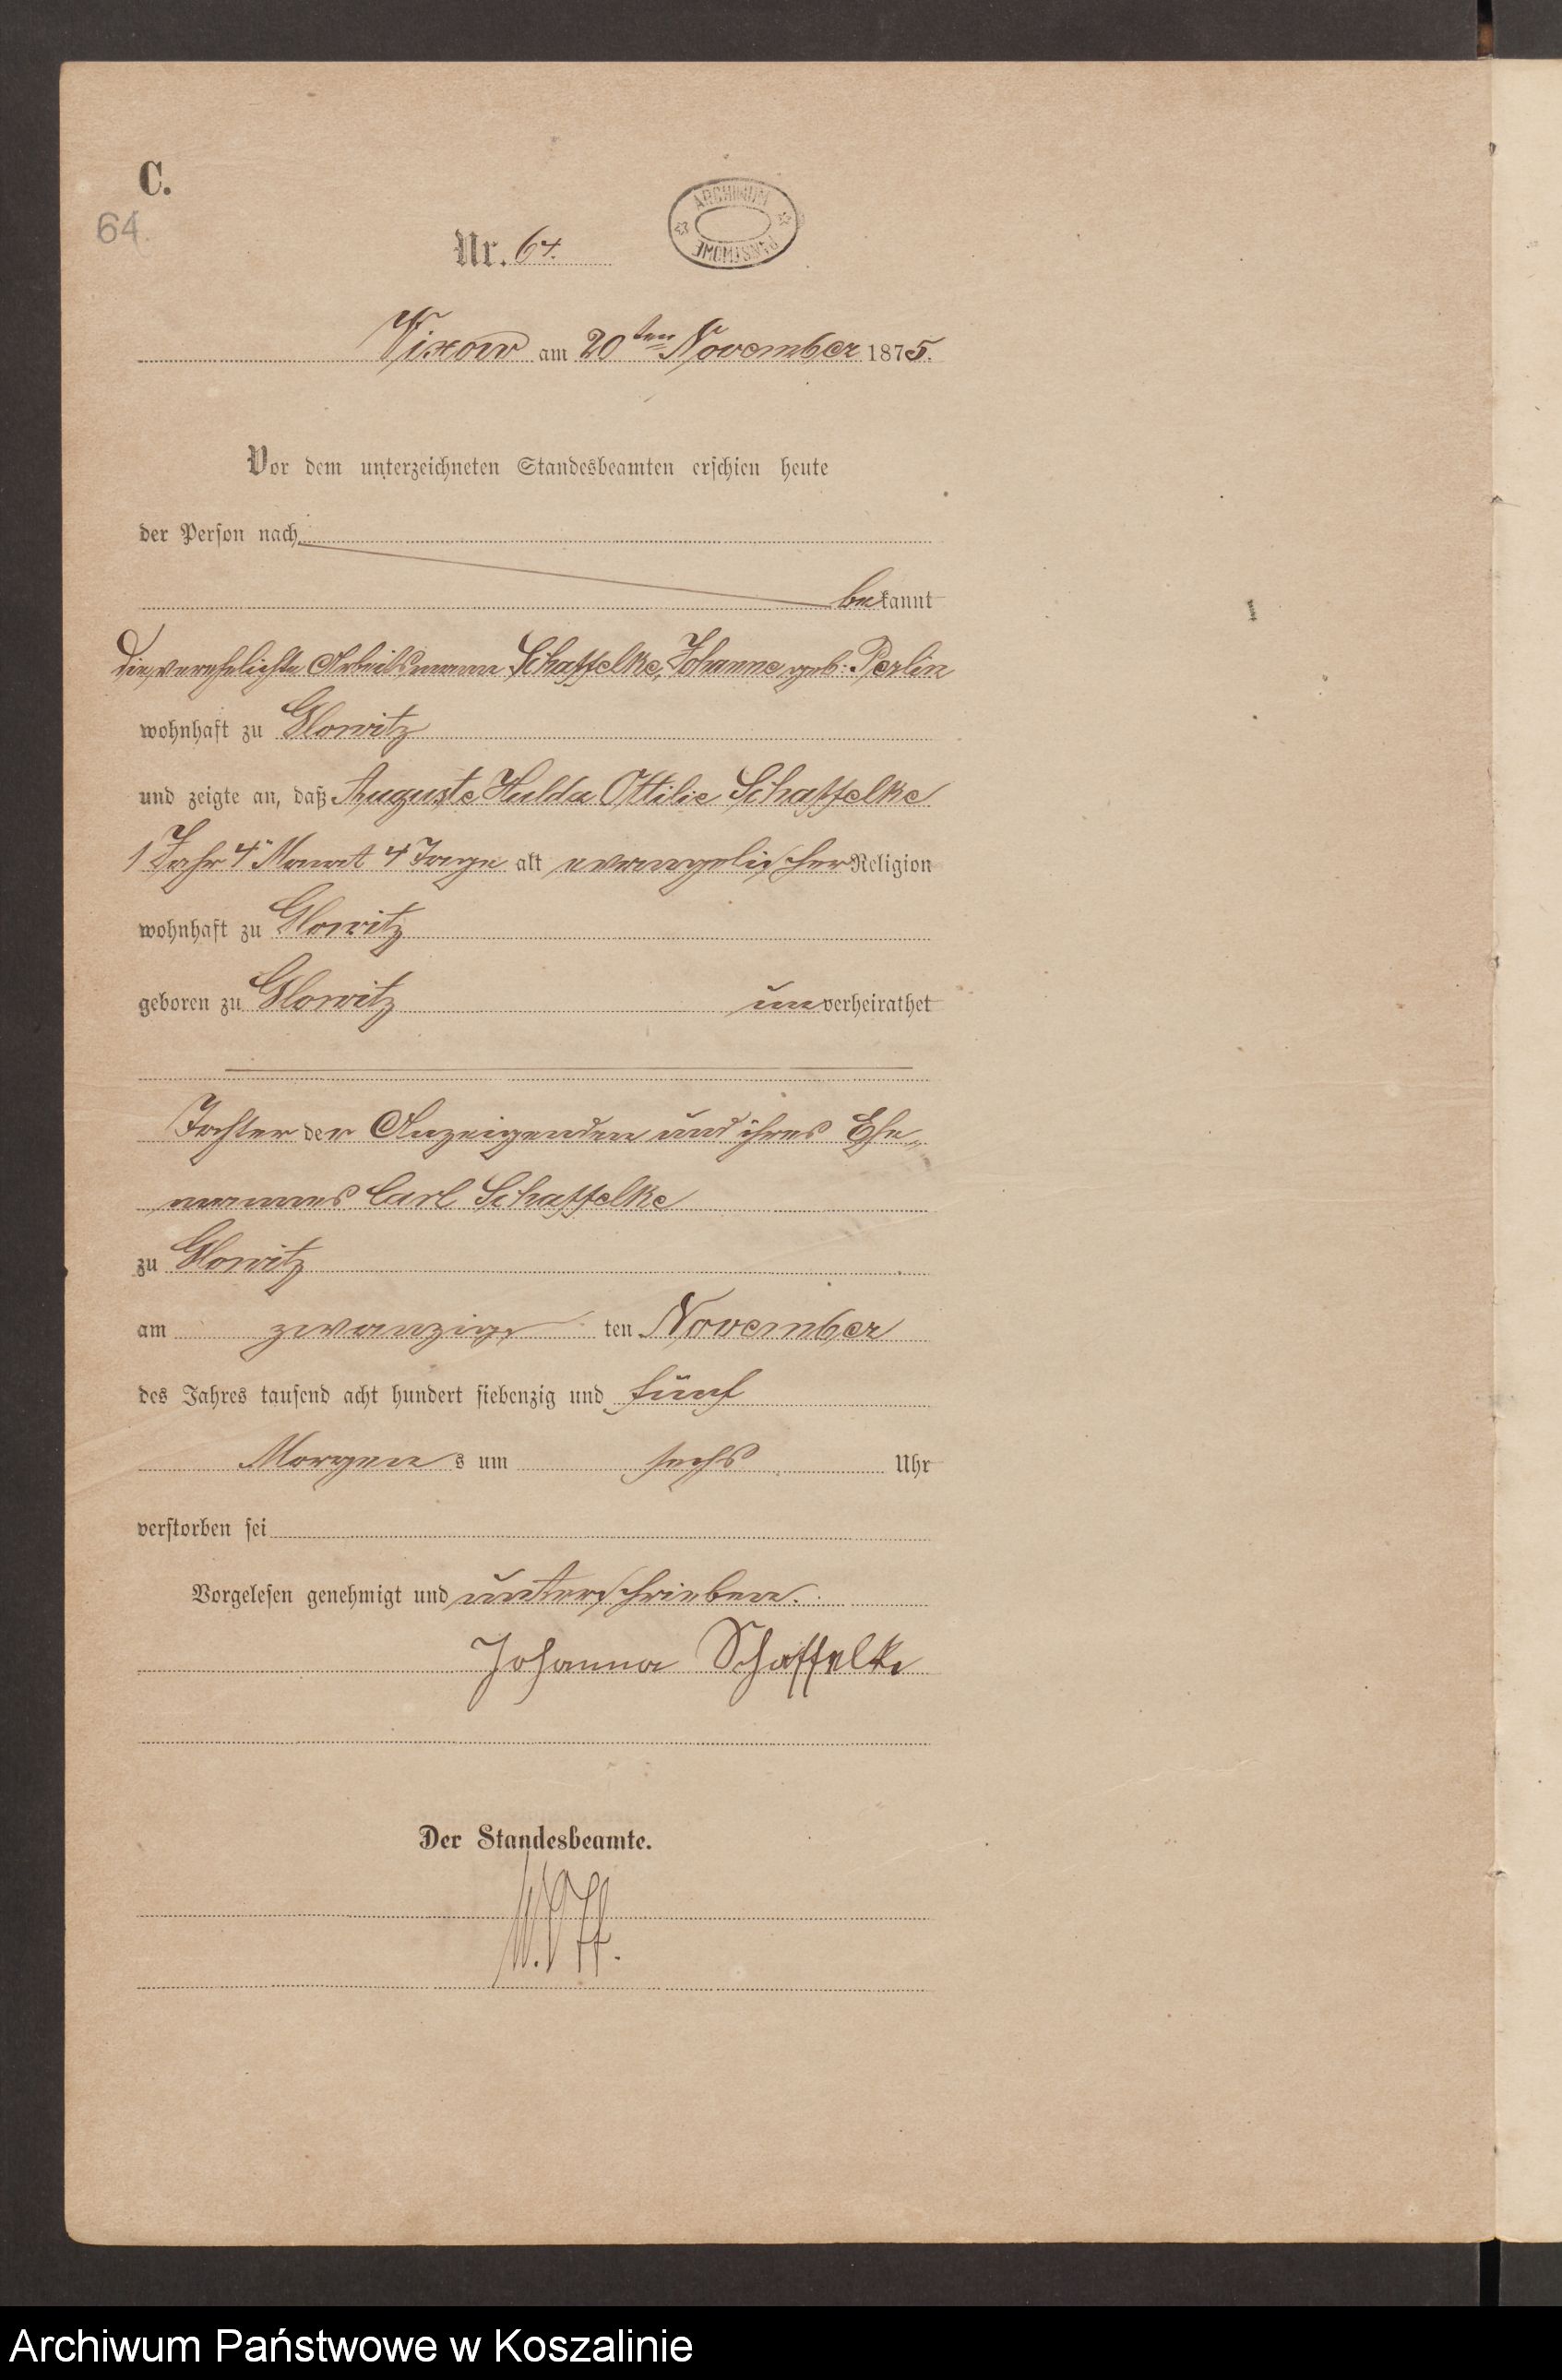 C.
64.
Nr. 64.
ARCHIWUM PAŃSTWOWE
Vixow am 20ten November 1875.
Vor dem unterzeichneten Standesbeamten erschien heute
der Person nach
bekannt
die verehelichte Arbeitsmann Schaffelke, Johanne geb: Perlin
wohnhaft zu Glowitz
und zeigte an, daß Auguste Hulda Ottilie Schaffelke
1 Jahr 4 Monat 4 Tage alt evangelischer Religion
wohnhaft zu Glowitz
geboren zu Glowitz unverheirathet
Tochter der Anzeigenden und ihres Ehe-
mannes Carl Schaffelke
zu Glowitz
am zwanzig ten November
des Jahres tausend acht hundert siebenzig und fünf
Morgens um sechs Uhr
verstorben sei
Vorgelesen genehmigt und unterschrieben.
Johanna Schaffelke
Der Standesbeamte.
Archiwum Państwowe w Koszalinie